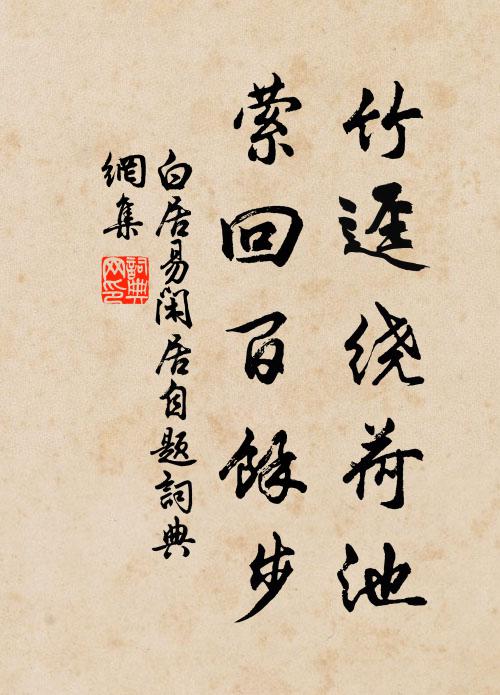 竹迳绕荷池
萦回百餘步
白居易闲居自题詞典
網集
詞典
网印